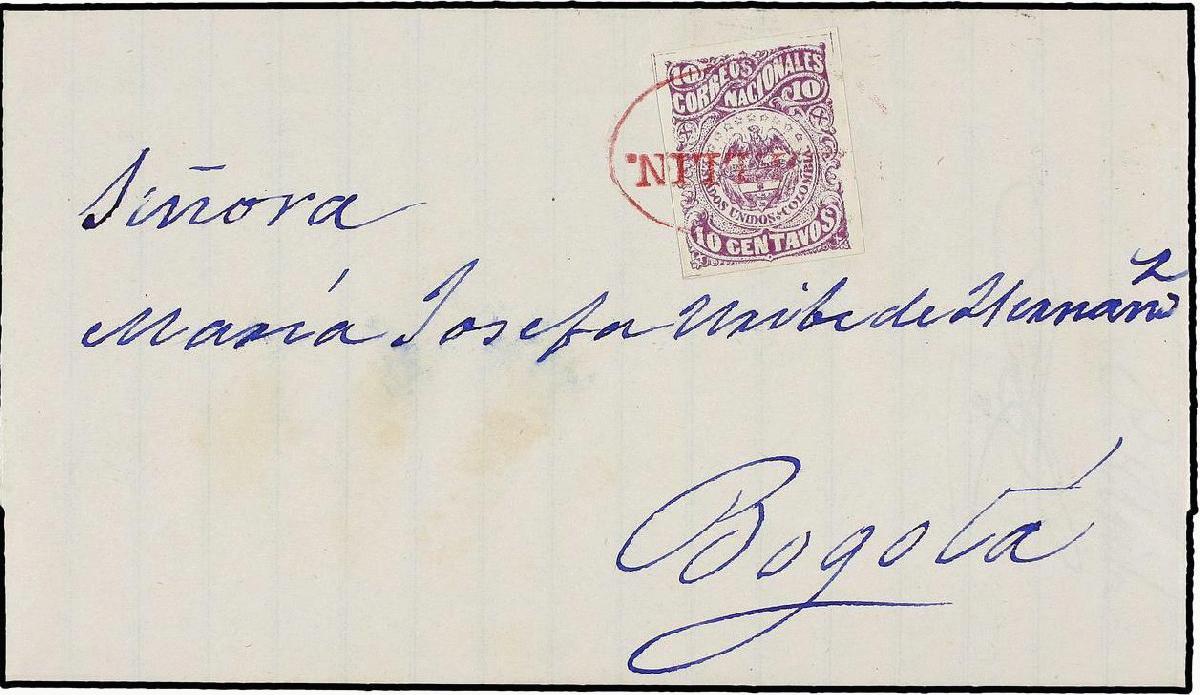 10
CORREOS
NACIONALES
10
ESTADOS UNIDOS COLOMBIA
10 CENTAVOS
Señora
María Josefa Uribe de Hernánz
Bogotá